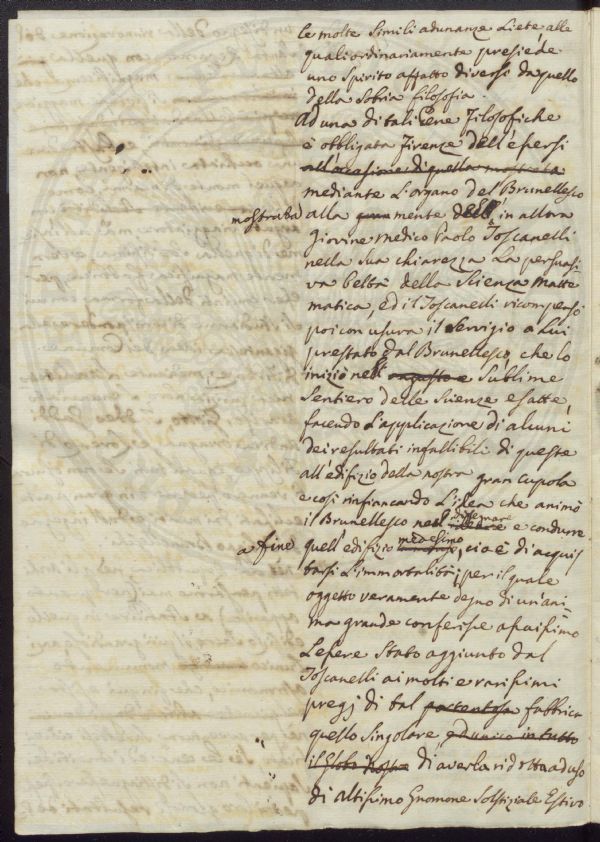 le molte simili adunanze liete alle
quali ordinariamente presiede
uno spirito affatto diversi da quello
della sobria filosofia.
Ad una di tali Cene Filosofiche
è obbligata Firenze dell'essersi
all'occasione di quella mostrata
mediante l'organo del Brunellesco
mostratasi alla mente dell' in allora
Giovine medico Paolo Toscanelli
nella sua chiarezza la persuasi
va beltà della Scienza matte
matica, ed il Toscanelli ricompensò
poi con usura il servigio a lui
prestato dal Brunellesco, che lo
iniziò nell' angusto e sublime
sentiero delle Scienze esatte,
facendo l'applicazione di alcuni
dei resultati infallibili di queste
all'edifizio della nostra gran Cupola
e così rinfiancando l'idea che animò
il Brunellesco nell' e condurre
a fine quell'edifizio medesimo, cioè di acquis
tarsi l'immortalità; per il quale
oggetto veramente degno di un'ani=
ma grande conferisce assaissimo
l'essere stato aggiunto dal
Toscanelli ai molti e rarissimi
pregj di tal portentosa fabbrica
quello singolare, ed unico in tutto
il Globo nostro di averla ridotta ad uso
di altissimo Gnomone Solstiziale Estivo